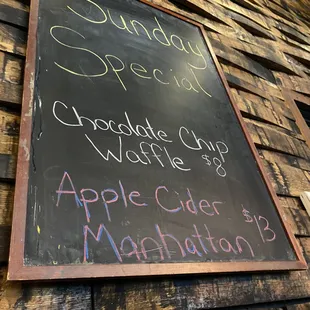 Sunday
Special
Chocolate Chip
Waffle $8
Apple Cider
Manhattan $13